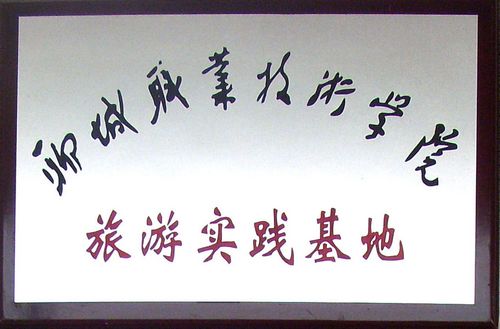 聊城職業技術学院
旅游实践基地